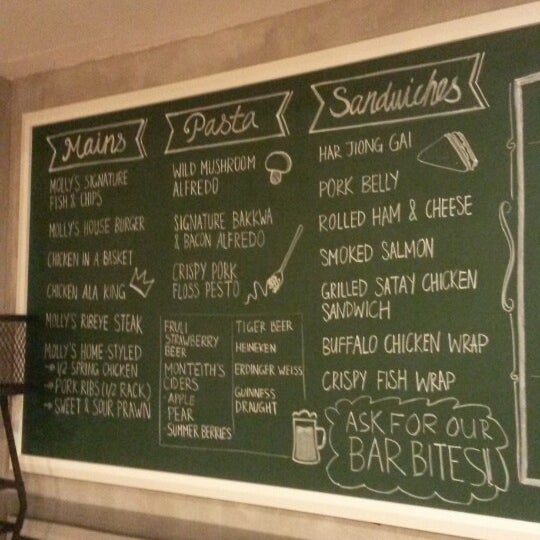 Mains
MOLLY'S SIGNATURE
FISH & CHIPS
MOLLY'S HOUSE BURGER
CHICKEN IN A BISKET
CHICKEN ALA KING
MOLLY'S RIBEYE STEAK
MOLLY'S HOME-STYLED
→ 1/2 SPRING CHICKEN
→ PORK RIBS (1/2 RACK)
→ SWEET & SOUR PRAWN
Pasta
WILD MUSHROOM
ALFREDO
SIGNATURE BAKKWA
& BACON ALFREDO
CRISPY PORK
FLOSS PESTO
FRULI
STRAWBERRY
BEER
MONTEITH'S
CIDERS
- APPLE
PEAR
- SUMMER BERRIES
TIGER BEER
HEINEKEN
ERDINGER WEISS
GUINNESS
DRAUGHT
Sandwiches
HAR JIONG GAI
PORK BELLY
ROLLED HAM & CHEESE
SMOKED SALMON
GRILLED SATAY CHICKEN
SANDWICH
BUFFALO CHICKEN WRAP
CRISPY FISH WRAP
ASK FOR OUR
BAR BITES!!